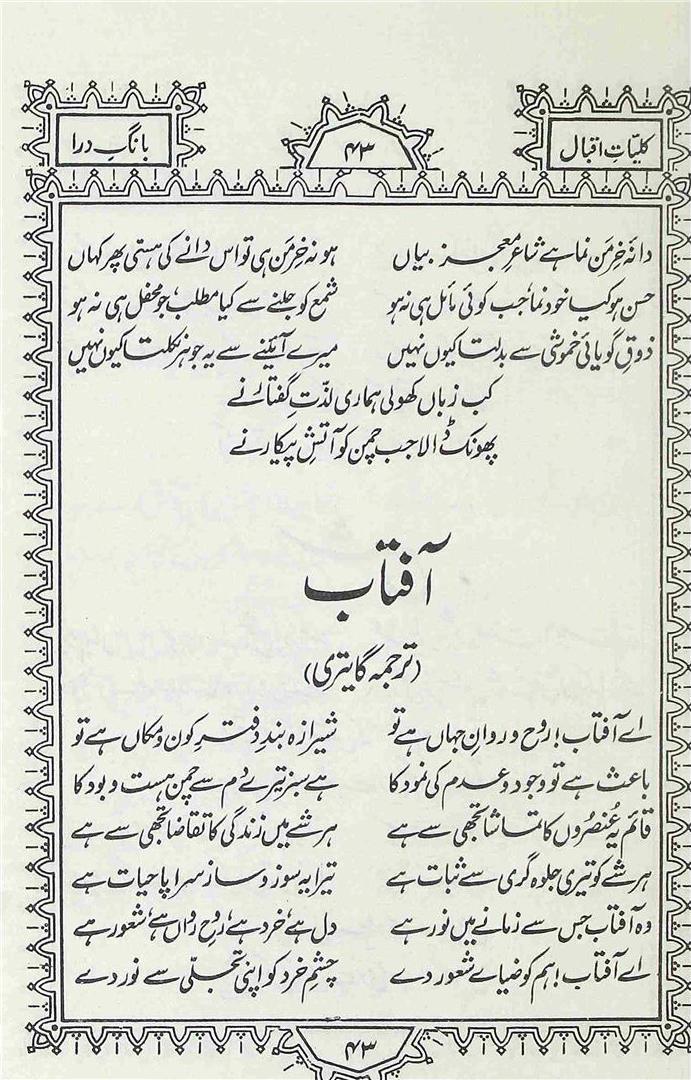 کلیّاتِ اقبال
۴۳
بانگِ درا
دانۂ خرمن نما ہے شاعرِ معجز بیاں ہو نہ خرمن ہی تو اس دانے کی ہستی پھر کہاں
حسن ہو کیا خود نما جب کوئی مائل ہی نہ ہو شمع کو جلنے سے کیا مطلب، جو محفل ہی نہ ہو
ذوقِ گویائی خموشی سے بدلتا کیوں نہیں میرے آئینے سے یہ جوہر نکلتا کیوں نہیں
کب زباں کھولی ہماری لذّتِ گفتار نے
پھونک ڈالا جب چمن کو آتشِ پیکار نے
آفتاب
(ترجمہ گایتری)
اے آفتاب! روح و روانِ جہاں ہے تو شیرازہ بندِ دفترِ کون و مکاں ہے تو
باعث ہے تو وجود و عدم کی نمود کا ہے سبز تیرے دم سے چمن ہست و بود کا
قائم یہ عُنصروں کا تماشا تجھی سے ہے ہر شے میں زندگی کا تقاضا تجھی سے ہے
ہر شے کو تیری جلوہ گری سے ثبات ہے تیرا یہ سوز و ساز سراپا حیات ہے
وہ آفتاب جس سے زمانے میں نور ہے دل ہے، خرد ہے، روحِ رواں ہے، شعور ہے
اے آفتاب! ہم کو ضیائے شعور دے چشمِ خرد کو اپنی تجلّی سے نور دے
۴۳